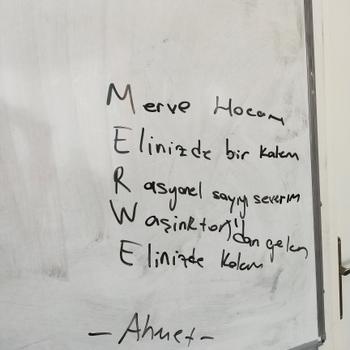 Merve Hocam
Elinizde bir kalem
Rasyonel sayıyı severim
Waşinkton'dan gelen
Elinizde Kalem
- Ahmet -